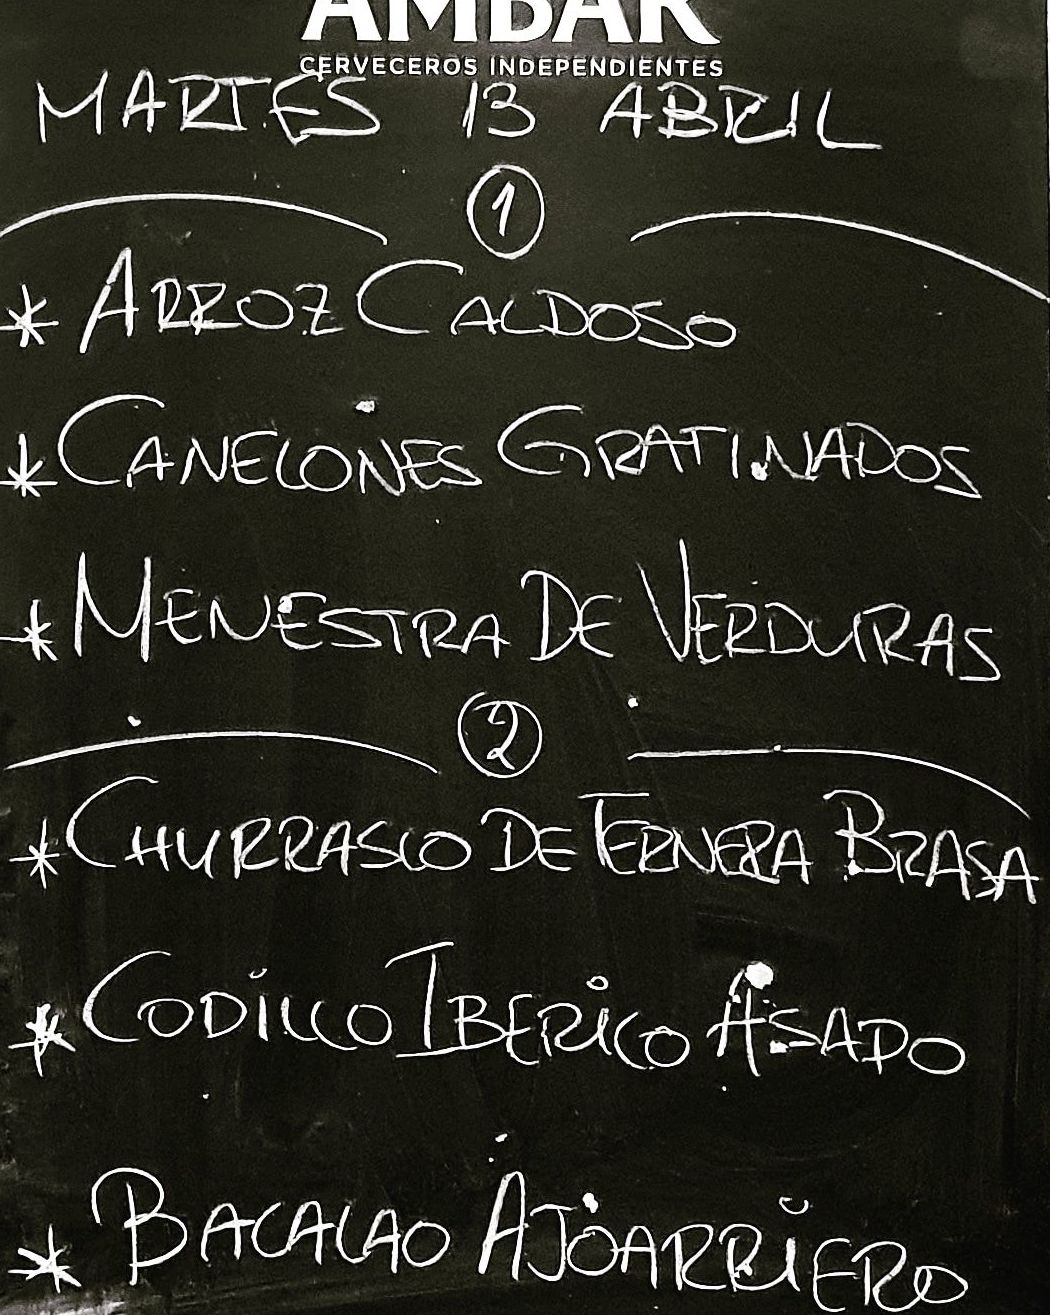 AMBAR
CERVECEROS INDEPENDIENTES
MARTES 13 ABRIL
1
* ARROZ CALDOSO
* CANELONES GRATINADOS
* MENESTRA DE VERDURAS
2
* CHURRASCO DE TERNERA BRASA
* CODILLO IBERICO ASADO
* BACALAO AJOARRIERO